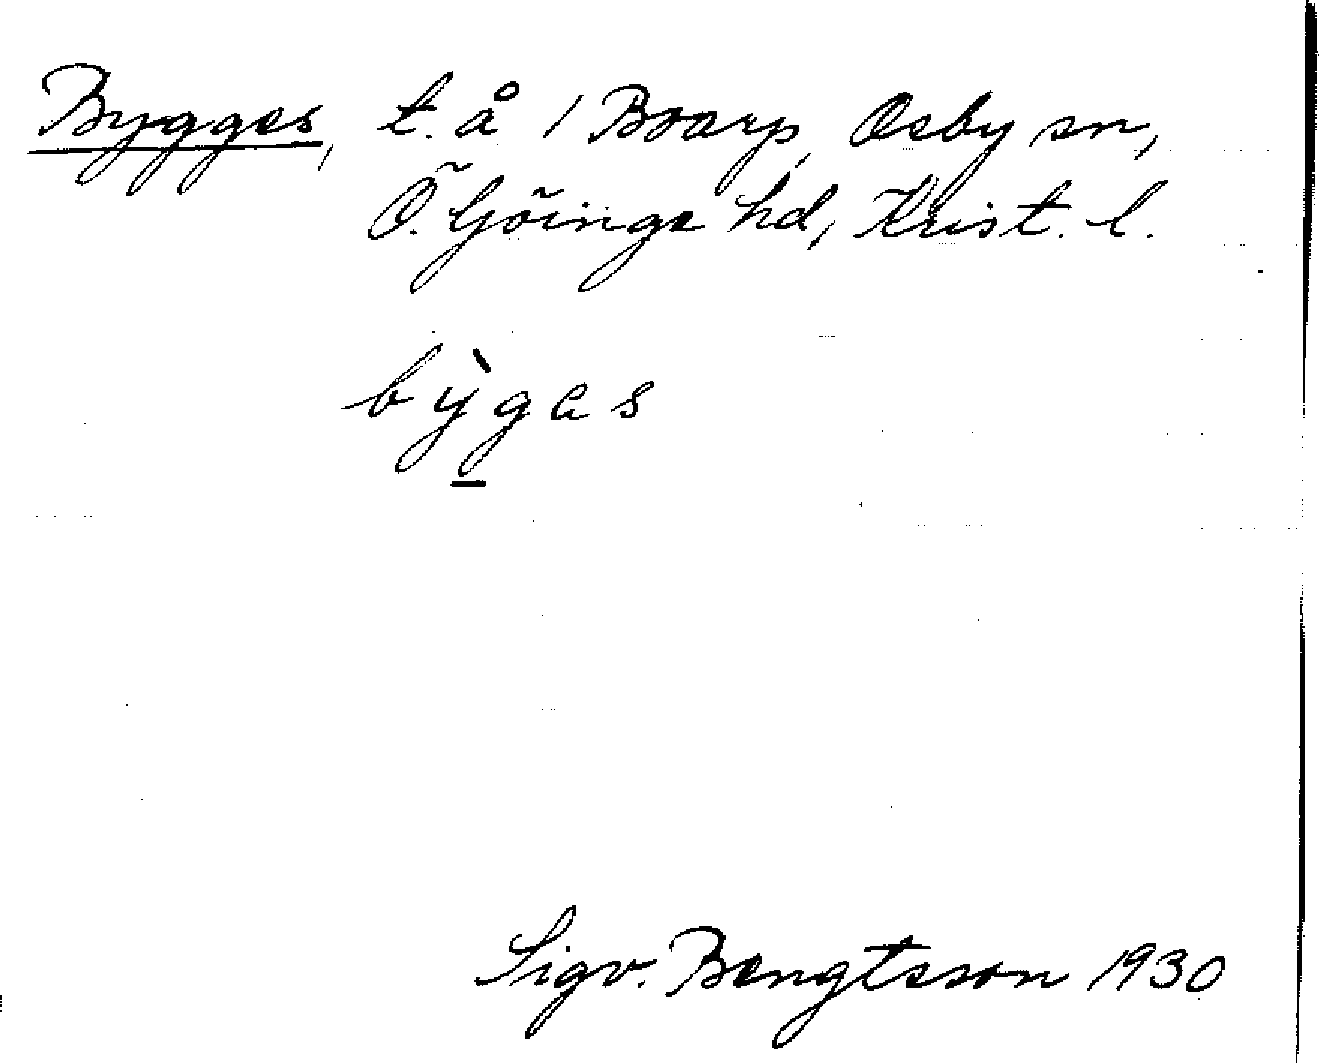 Bygges, t. å / Boarp, Osby sn,
Ö. Göinge hd, Krist. l.
bỳgas
Sigv. Bengtsson 1930